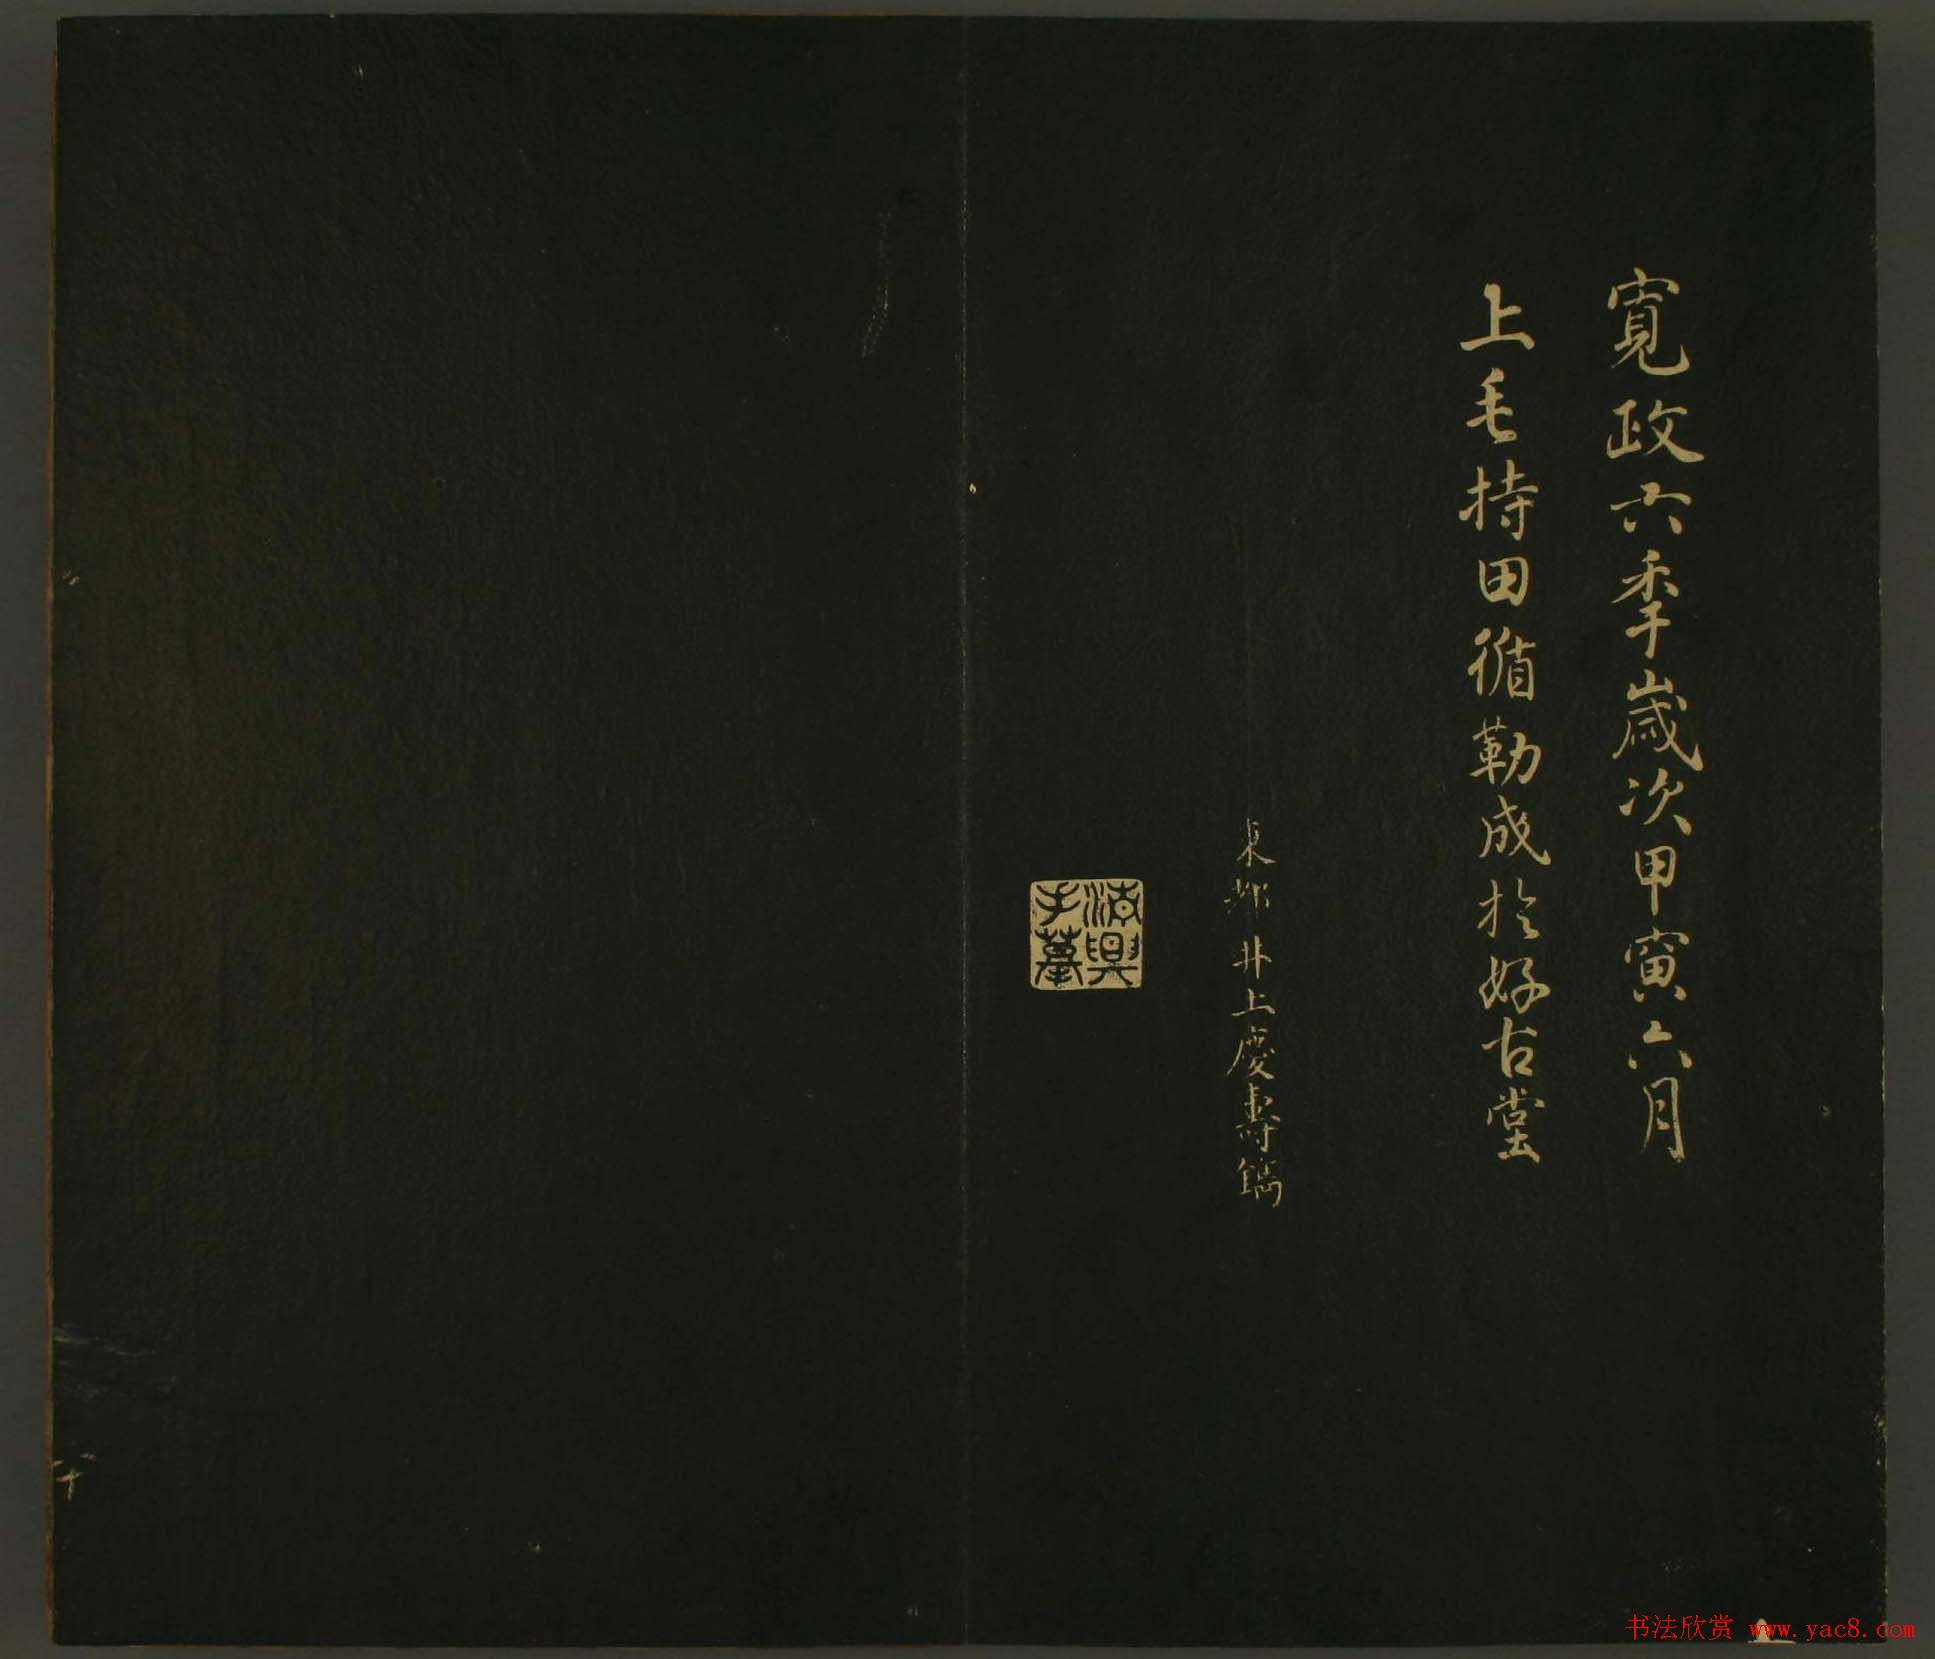 寛政六季歳次甲寅六月
上毛持田循勒成於好古堂
東都井上慶壽鐫
手摹
书法欣赏 www.yac8.com